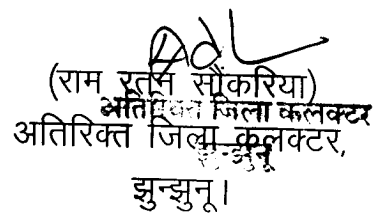 (राम रतन सौंकरिया)
अतिरिक्त जिला कलक्टर
अतिरिक्त जिला कलक्टर,
झुन्झुनू
झुन्झुनू।